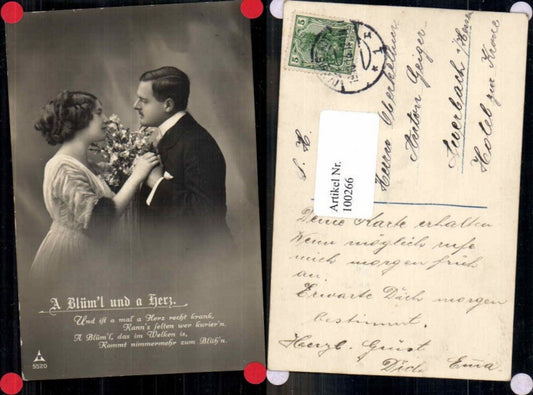 A Blüm'l und a Herz.
Und ist a mal a Herz recht krank,
Kann's selten wer kurier'n.
A Blüm'l, das im Welken is,
Kommt nimmermehr zum Blüh'n.
5520
5
5
S. H.
Herrn Oberkellner
Anton Geiger
Auerbach i/Hessen
Hotel zur Krone
Artikel Nr.
100266
Deine Karte erhalten
Wenn möglich rufe
mich morgen früh
an.
Erwarte Dich morgen
bestimmt.
Herzl. Grüst
Dich Ema